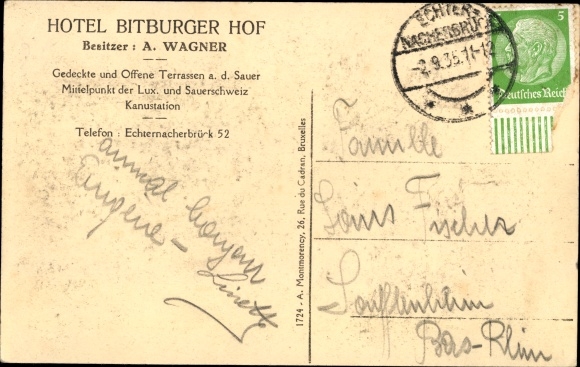 HOTEL BITBURGER HOF
Besitzer : A. WAGNER
Gedeckte und Offene Terrassen a. d. Sauer
Mittelpunkt der Lux. und Sauerschweiz
Kanustation
Telefon : Echternacherbrück 52
Eugène –
1724 - A. Montmorency, 26, Rue du Cadran, Bruxelles
ECHTER-
NACHERBRÜCK
-2.9.35.11-12
5
Deutsches Reich
Famille
Louis Fischer
Soufflenheim
Bas-Rhin